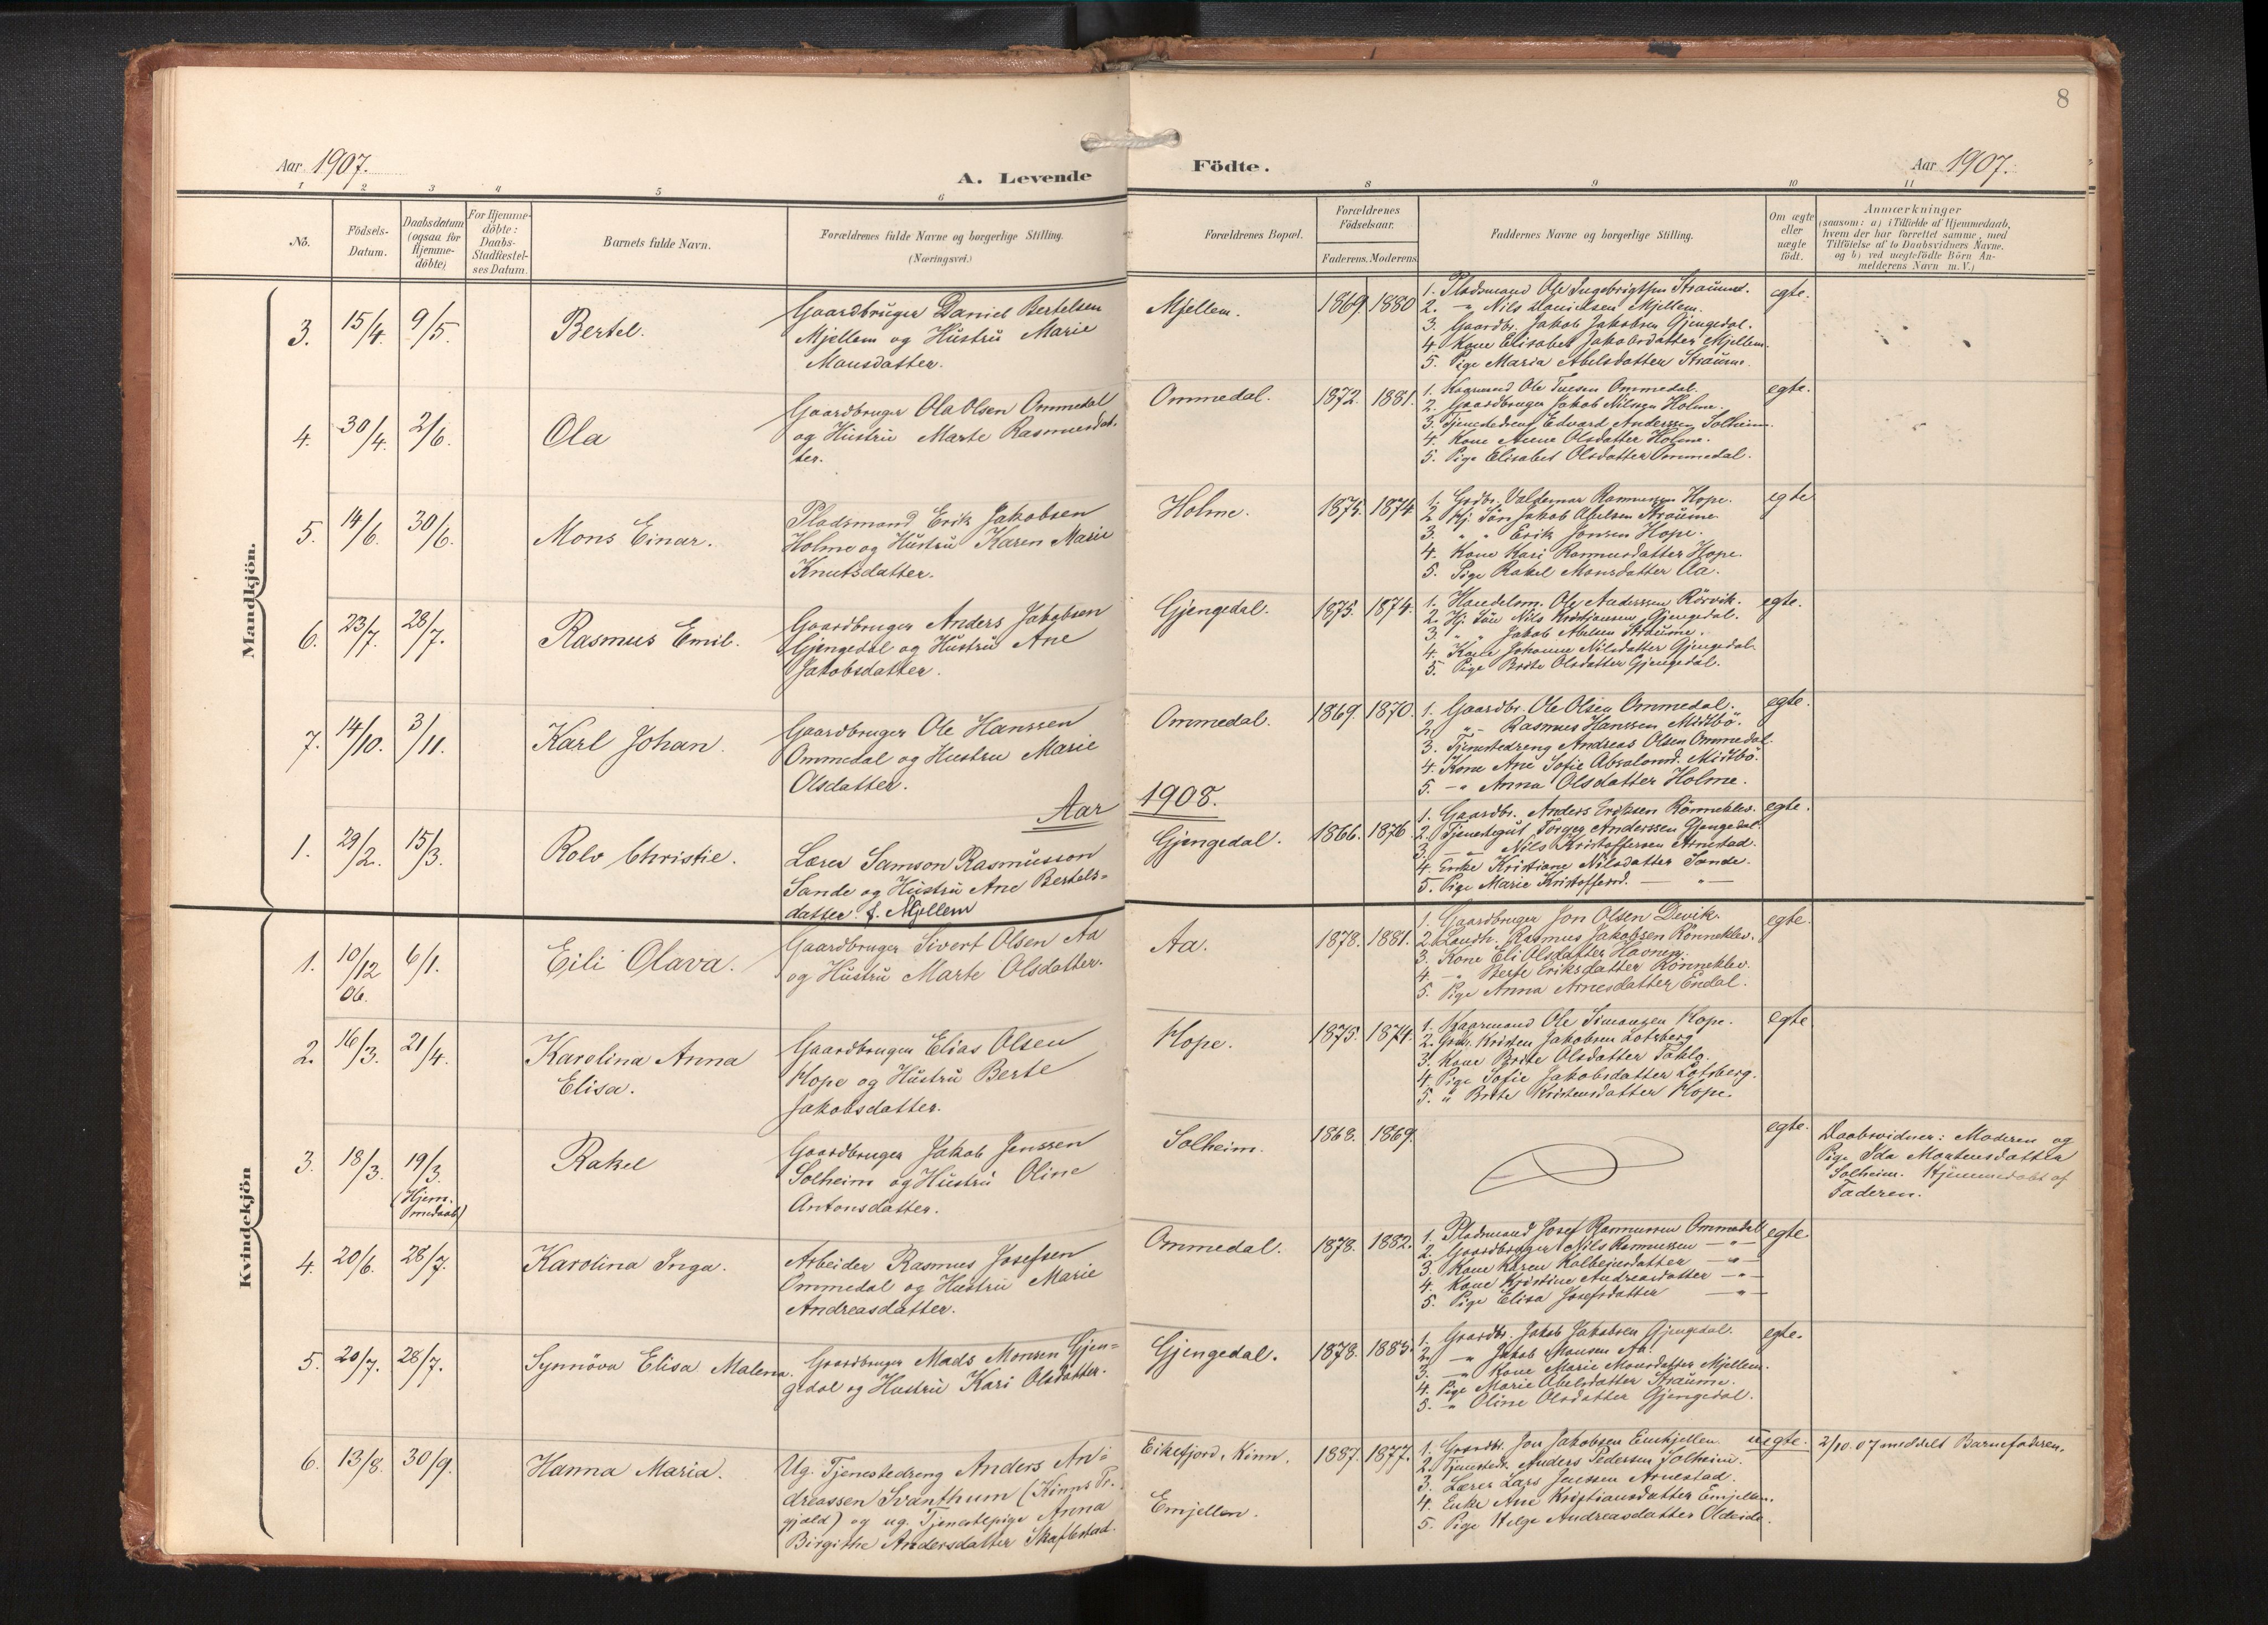 8
Aar 1907.
A. Levende
Födte.
Aar 1907.
1 2 3 4 5 6 8 9 10 11
No.
Födsels-
Datum.
Daabsdatum
(ogsaa for
Hjemme-
döbte)
For Hjemme-
döbte:
Daabs-
Stadfæstel-
ses Datum.
Barnets fulde Navn.
Forældrenes fulde Navne og borgerlige Stilling.
(Næringsvei.)
Forældrenes Bopæl.
Forældrenes
Födselsaar.
Faderens. Moderens.
Faddernes Navne og borgerlige Stilling.
Om ægte
eller
uægte
födt.
Anmærkninger
(saasom: a) i Tilfælde af Hjemmedaab,
hvem der har forrettet samme, med
Tilföielse af to Daabsvidners Navne,
og b) ved uægtefödte Börn An-
melderens Navn m. V.)
Mandkjön.
3. 15/4. 9/5. Bertel.
Gaardbruger Daniel Bertelsen
Mjellem og Hustru Marie
Monsdatter.
Mjellem. 1869. 1880
1. Pladsmand Ole Ingebrigtsen Straume.
2. -"- Nils Danielsen Mjellem.
3. Gaardbr. Jakob Jakobsen Gjengedal.
4. Kone Elisabet Jakobsdatter Mjellem.
5. Pige Maria Abelsdatter Straume.
egte.
4. 30/4. 2/6. Ola
Gaardbruger Ola Olsen Ommedal
og Hustru Marte Rasmusdat-
ter.
Ommedal. 1872. 1881.
1. Kaarmand Ole Ommedal.
2. Gaardbruger Jakob Nilsen Holme.
3. Tjenestedreng Edvard Anderssen Solheim.
4. Kone Anne Olsdatter Holme.
5. Pige Elisabet Olsdatter Ommedal.
egte.
5. 14/6. 30/6. Mons Einar.
Pladsmand Erik Jakobsen
Holme og Hustru Karen Marie
Knutsdatter.
Holme. 1875. 1874
1. Grdbr. Valdemar Rasmussen Hope.
2. Hj. Søn Jakob Abelsen Straume.
3. " " Erik Jonsen Hope.
4. Kone Kari Rasmusdatter Hope.
5. Pige Rakel Monsdatter Aa.
egte
6. 23/7. 28/7. Rasmus Emil.
Gaardbruger Anders Jakobsen
Gjengedal og Hustru Ane
Jakobsdatter.
Gjengedal. 1875. 1874.
1. Handelsm. Ole Anderssen Rörvik.
2. Hj. Søn Nils Kristiansen Gjengedal.
3. " " Jakob Abelsen Straume.
4. Kone Johanne Nilsdatter Gjengedal.
5. Pige Brite Olsdatter Gjengedal.
egte.
7. 14/10. 3/11. Karl Johan.
Gaardbruger Ole Hanssen
Ommedal og Hustru Marie
Olsdatter.
Ommedal. 1869. 1870.
1. Gaardbr. Ole Olsen Ommedal.
2. -"- Rasmus Hanssen Midtbö.
3. Tjenestedreng Andreas Olsen Ommedal.
4. Kone Ane Sofie Absalond. Midtbö.
5. -"- Anna Olsdatter Holme.
egte.
Aar 1908.
1. 29/2. 15/3. Rolv Christie.
Lærer Samson Rasmusson
Sande og Hustru Ane Bertels=
datter f. Mjellem
Gjengedal. 1866. 1876.
1. Gaardbr. Anders Eriksen Rönneklev.
2. Tjenestegut Torger Anderssen Gjengedal.
3. -"- Nils Kristoffersen Arnestad.
4. Enke Kristiane Nilsdatter Sande.
5. Pige Marie Kristofferd. -"-
egte.
Kvindekjön
1. 10/12 06. 6/1. Eili Olava.
Gaardbruger Sivert Olsen Aa
og Hustru Marte Olsdatter.
Aa. 1878. 1881.
1. Gaardbruger Jon Olsen Devik.
2. Landh. Rasmus Jakobsen Rönneklev.
3. Kone Eli Olsdatter Havnen.
4. -"- Berte Eriksdatter Rönneklev.
5. Pige Anna Arnesdatter Endal.
egte.
2. 16/3. 21/4. Karolina Anna
Elisa.
Gaardbruger Elias Olsen
Hope og Hustru Berte
Jakobsdatter.
Hope. 1875. 1874.
1. Kaarmand Ole Simonsen Hope.
2. Grdbr. Kristen Jakobsen Lotsberg
3. Kone Brite Olsdatter
4. Pige Sofie Jakobsdatter Lotsberg.
5. " Brite Kristensdatter Hope.
egte
3. 18/3. 19/3. (Hjem-
medaab) Rakel
Gaardbruger Jakob Jenssen
Solheim og Hustru Oline
Antonsdatter.
Solheim. 1868. 1869.
egte.
Daabsvidner: Moderen og
Pige Ida Mortensdatter
Solheim. Hjemmedøbt af
Faderen.
4. 20/6. 28/7. Karolina Inga.
Arbeider Rasmus Josefsen
Ommedal og Hustru Marie
Andreasdatter.
Ommedal. 1878. 1882.
1. Pladsmand Josef Rasmussen Ommedal
2. Gaardbruger Nils Rasmussen -"-
3. Kone Karen Kolbeinsdatter -"-
4. Kone Kristine Andreasdatter -"-
5. Pige Elisa Josefsdatter -"-
egte.
5. 20/7. 28/7. Synnöva Elisa Malena.
Gaardbruger Mads Monsen Gjen=
gedal og Hustru Kari Olsdatter.
Gjengedal. 1878. 1885.
1. Gaardbr. Jakob Jakobsen Gjengedal.
2. -"- Jakob Monsen Aa.
3. -"- Kone Marie Monsdatter Mjellem.
4. Pige Marie Abelsdatter Straume.
5. -"- Oline Olsdatter Gjengedal.
egte.
6. 13/8. 30/9. Hanna Maria.
Ug. Tjenestedreng Anders An=
dreassen Svanthum (Kinns Pr.
gjæld) og ug. Tjenestepige Anna
Birgithe Andersdatter Skaflestad.
Eikefjord, Kinn. 1887. 1877.
Emjellen.
1. Gaardbr. Jon Jakobsen Emhjellen.
2. Tjenestedr. Anders Pedersen Solheim.
3. Lærer Lars Jenssen Arnestad.
4. Enke Ane Kristiansdatter Emjellen.
5. Pige Helge Andreasdatter Oldeide.
uegte.
2/10.07 meddelt Barnefaderen.